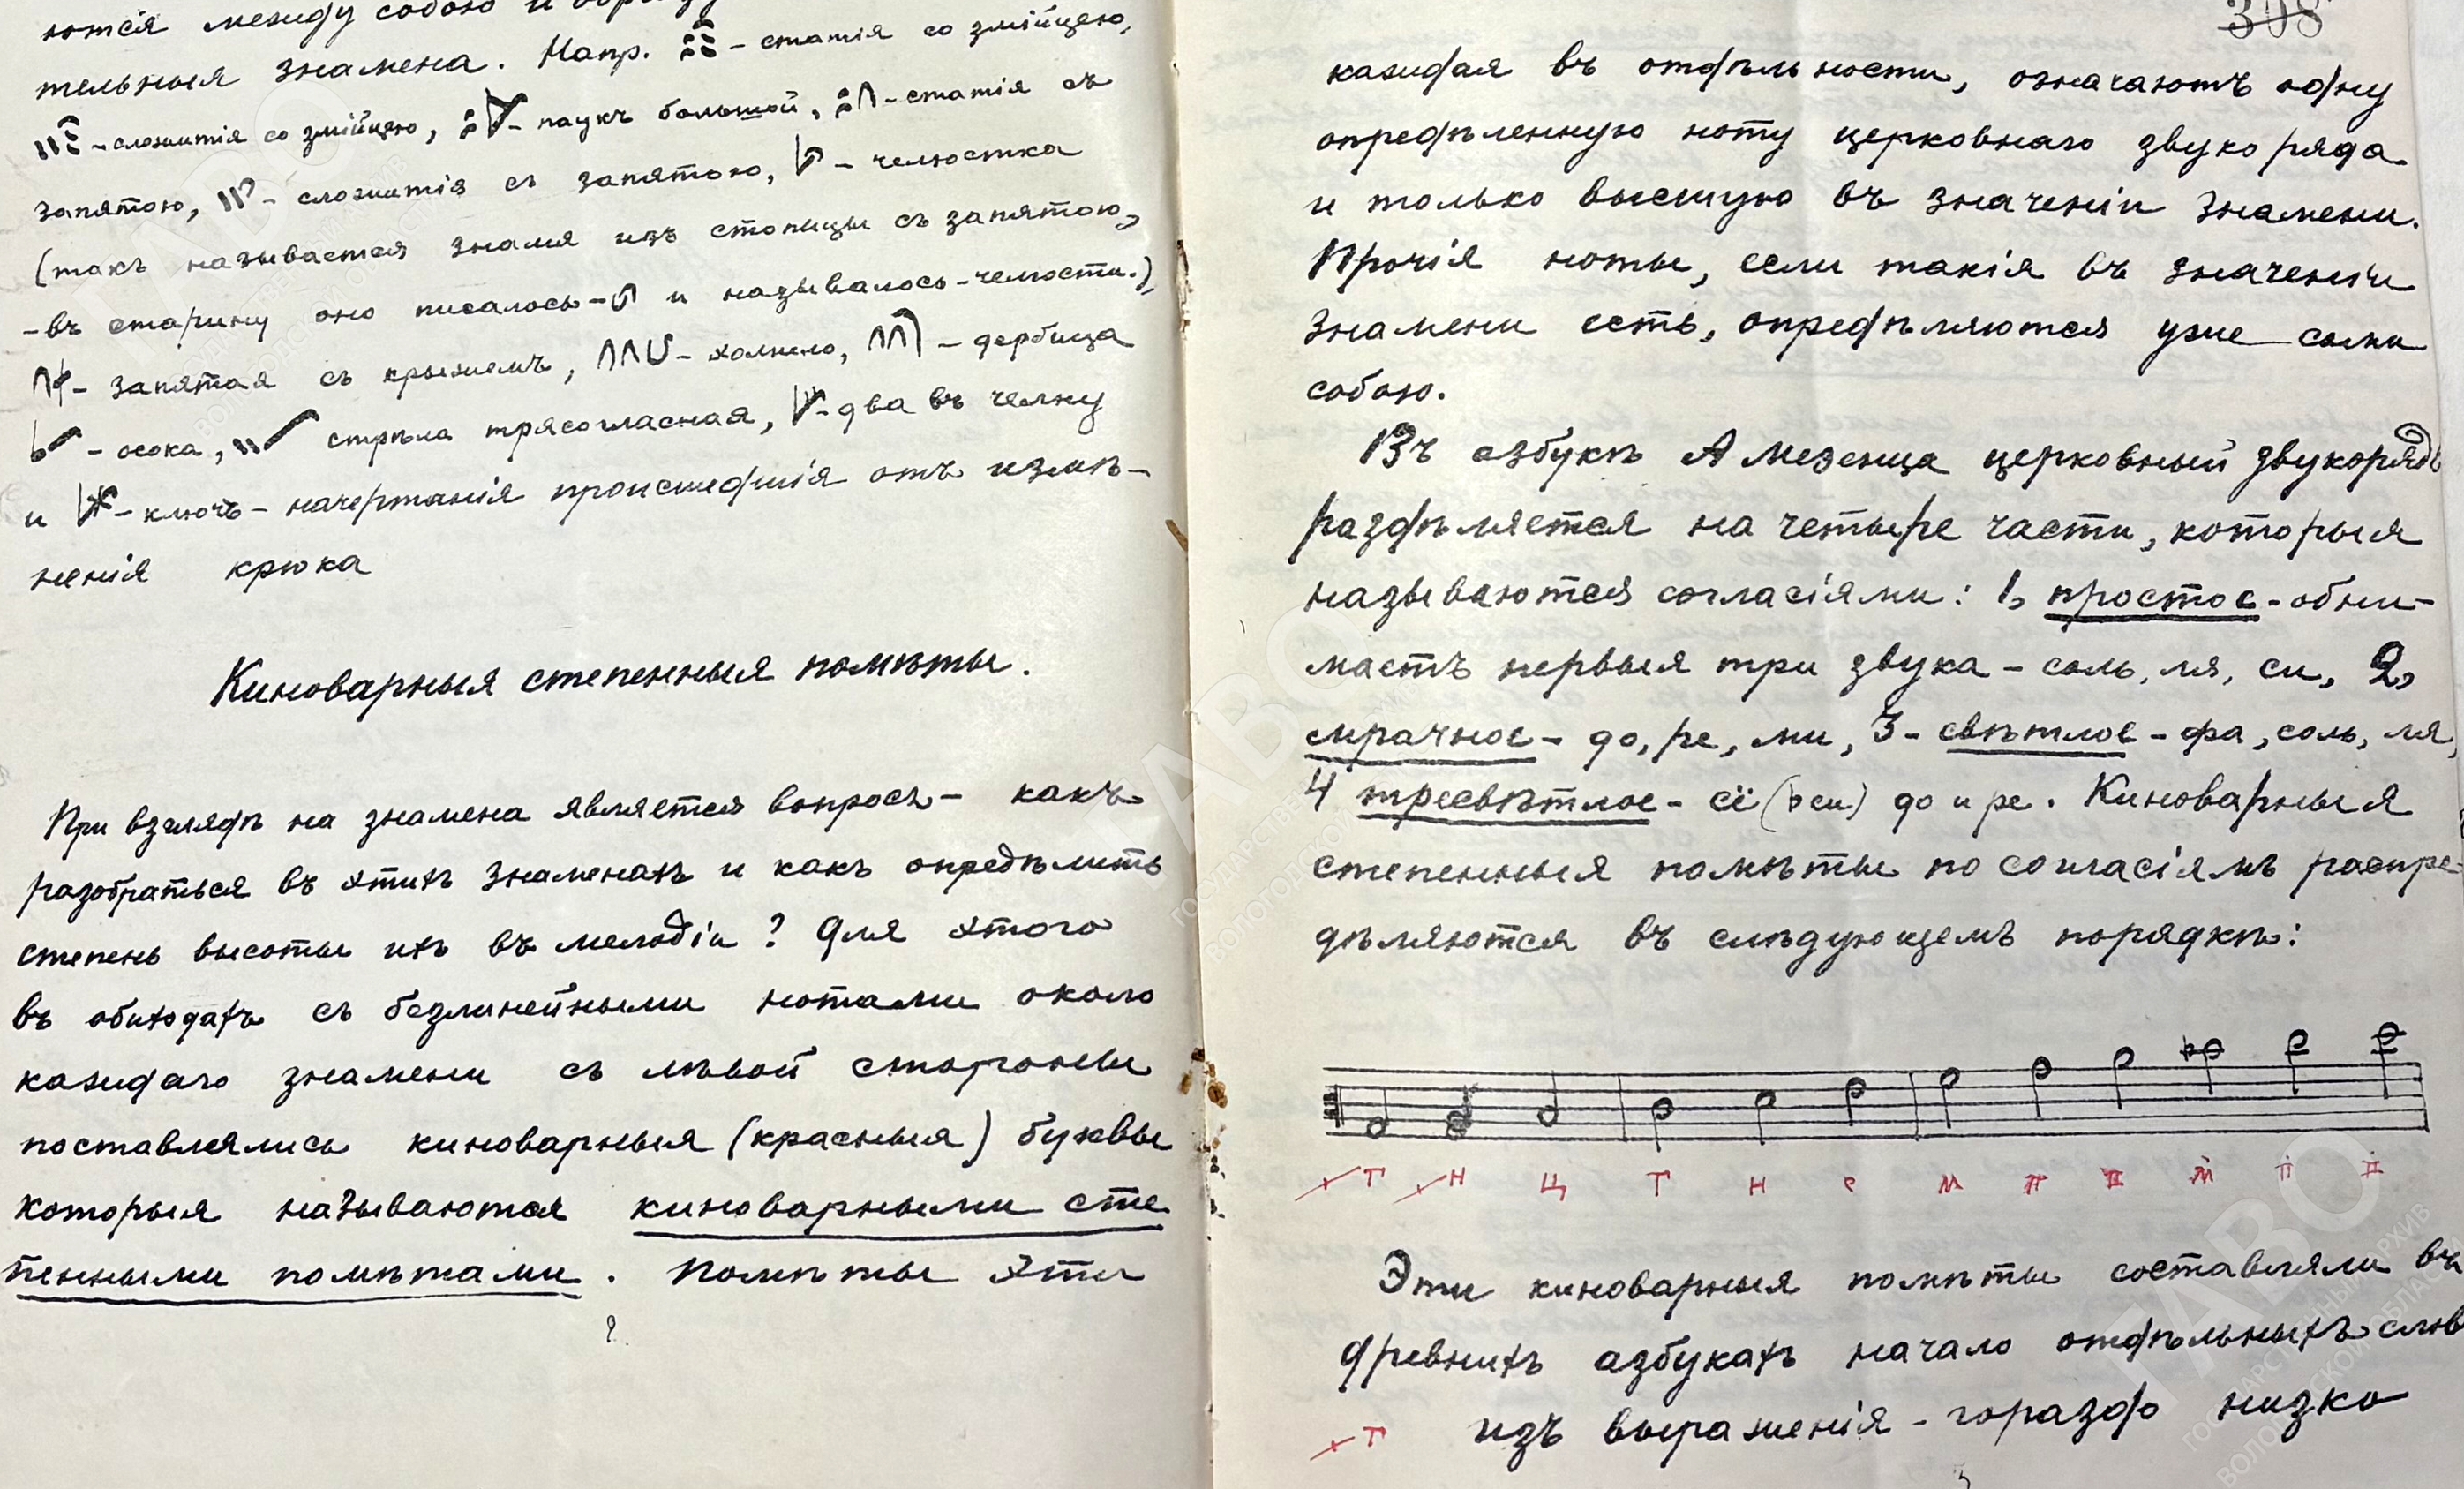 ются между собою и
тельныя знамена. Напр. - статія со змійцею,
- сложитія со змійцею, - паукъ большой, - статія съ
запятою, - сложитія съ запятою, - челюстка
(такъ называется знамя изъ стопицы съ запятою,
- въ старину оно писалось - и называлось - челюсти.),
- запятая съ крыжемъ, - хамило, - дербица
- осока, стрѣла трясогласная, - два въ челну
и - ключъ - начертанія происшедшія отъ измѣ-
ненія крюка
Киноварныя степенныя помѣты.
При взглядѣ на знамена является вопросъ - какъ
разобраться въ этихъ знаменахъ и какъ опредѣлить
степень высоты ихъ въ мелодіи? Для этого
въ обиходахъ съ безлинейными нотами около
каждаго знамени съ лѣвой стороны
поставлялись киноварныя (красныя) буквы
которыя называются киноварными сте
пенными помѣтами. Помѣты эти
308
каждая въ отдѣльности, означаютъ одну
опредѣленную ноту церковнаго звукоряда
и только высшую въ значеніи знамени.
Прочія ноты, если такія въ значеніи
знамени есть, опредѣляются уже сами
собою.
Въ азбукѣ А Мезенца церковный звукорядъ
раздѣляется на четыре части, которыя
называются согласіями: 1, простое - обни-
маетъ первыя три звука - соль, ля, си, 2,
мрачное - до, ре, ми, 3 - свѣтлое - фа, соль, ля,
4 тресвѣтлое - сё (♭си) до и ре. Киноварныя
степенныя помѣты по согласіямъ распре-
дѣляются въ слѣдующемъ порядкѣ:
Т Н Ц Т Н с М П П М П П
Эти киноварныя помѣты составляли въ
древнихъ азбукахъ начало отдѣльныхъ слов
Т изъ выраженія - гораздо низко